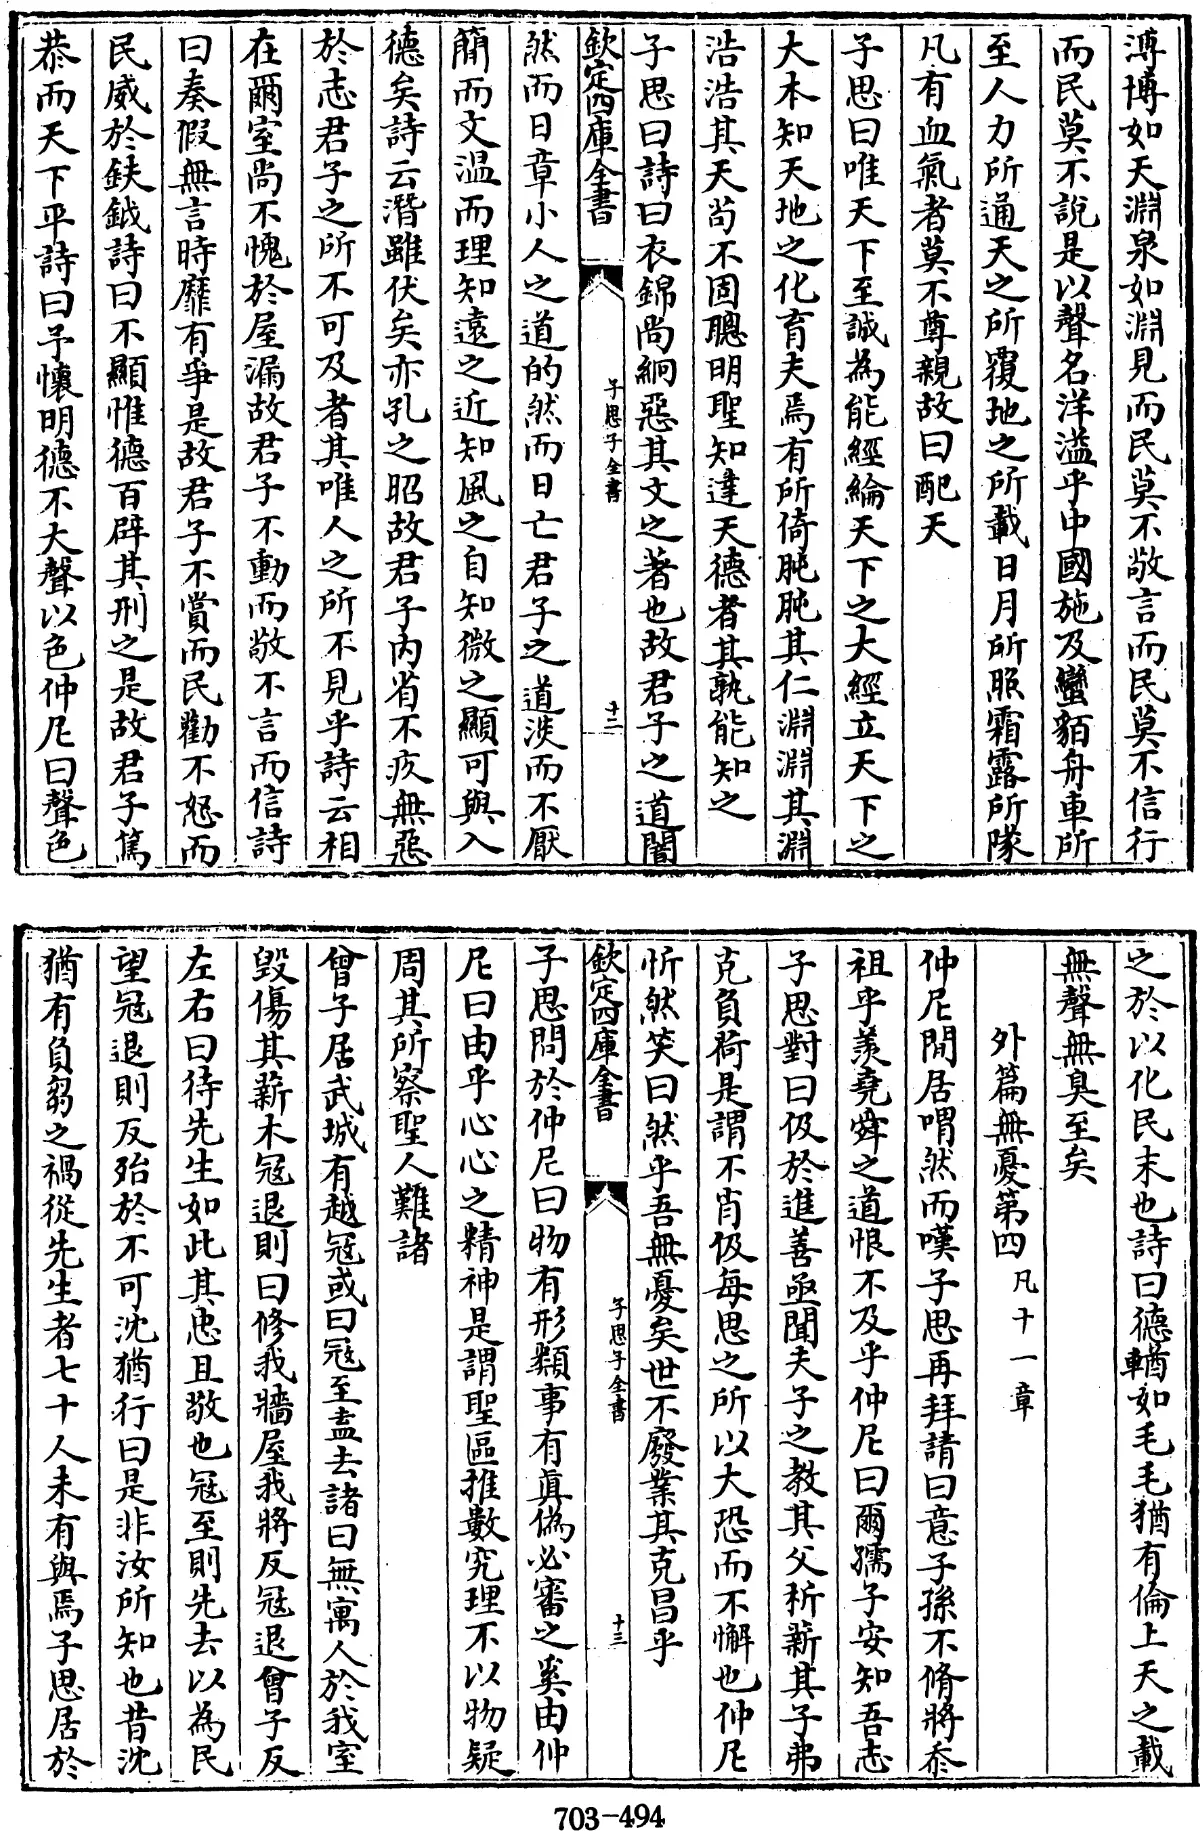 溥博如天淵泉如淵見而民莫不敬言而民莫不信行
而民莫不說是以聲名洋溢乎中國施及蠻貊舟車所
至人力所通天之所覆地之所載日月所照霜露所隊
凡有血氣者莫不尊親故曰配天
子思曰唯天下至誠為能經綸天下之大經立天下之
大本知天地之化育夫焉有所倚肫肫其仁淵淵其淵
浩浩其天苟不固聰明聖知達天德者其孰能知之
子思曰詩曰衣錦尚絅惡其文之著也故君子之道闇
欽定四庫全書
子思子全書
十二
然而日章小人之道的然而日亡君子之道淡而不厭
簡而文温而理知遠之近知風之自知微之顯可與入
德矣詩云潛雖伏矣亦孔之昭故君子内省不疚無惡
於志君子之所不可及者其唯人之所不見乎詩云相
在爾室尚不愧於屋漏故君子不動而敬不言而信詩
曰奏假無言時靡有爭是故君子不賞而民勸不怒而
民威於鈇鉞詩曰不顯惟德百辟其刑之是故君子篤
恭而天下平詩曰予懷明德不大聲以色仲尼曰聲色
之於以化民末也詩曰德輶如毛毛猶有倫上天之載
無聲無臭至矣
外篇無憂第四 凡十一章
仲尼閒居喟然而嘆子思再拜請曰意子孫不脩將忝
祖乎羨堯舜之道恨不及乎仲尼曰爾孺子安知吾志
子思對曰伋於進善亟聞夫子之教其父析薪其子弗
克負荷是謂不肖伋每思之所以大恐而不懈也仲尼
忻然笑曰然乎吾無憂矣世不廢業其克昌乎
欽定四庫全書
子思子全書
十三
子思問於仲尼曰物有形類事有真偽必審之奚由仲
尼曰由乎心心之精神是謂聖區推數究理不以物疑
周其所察聖人難諸
曾子居武城有越寇或曰寇至盍去諸曰無寓人於我室
毀傷其薪木寇退則曰修我牆屋我將反寇退曾子反
左右曰待先生如此其忠且敬也寇至則先去以為民
望寇退則反殆於不可沈猶行曰是非汝所知也昔沈
猶有負芻之禍從先生者七十人未有與焉子思居於
703-494